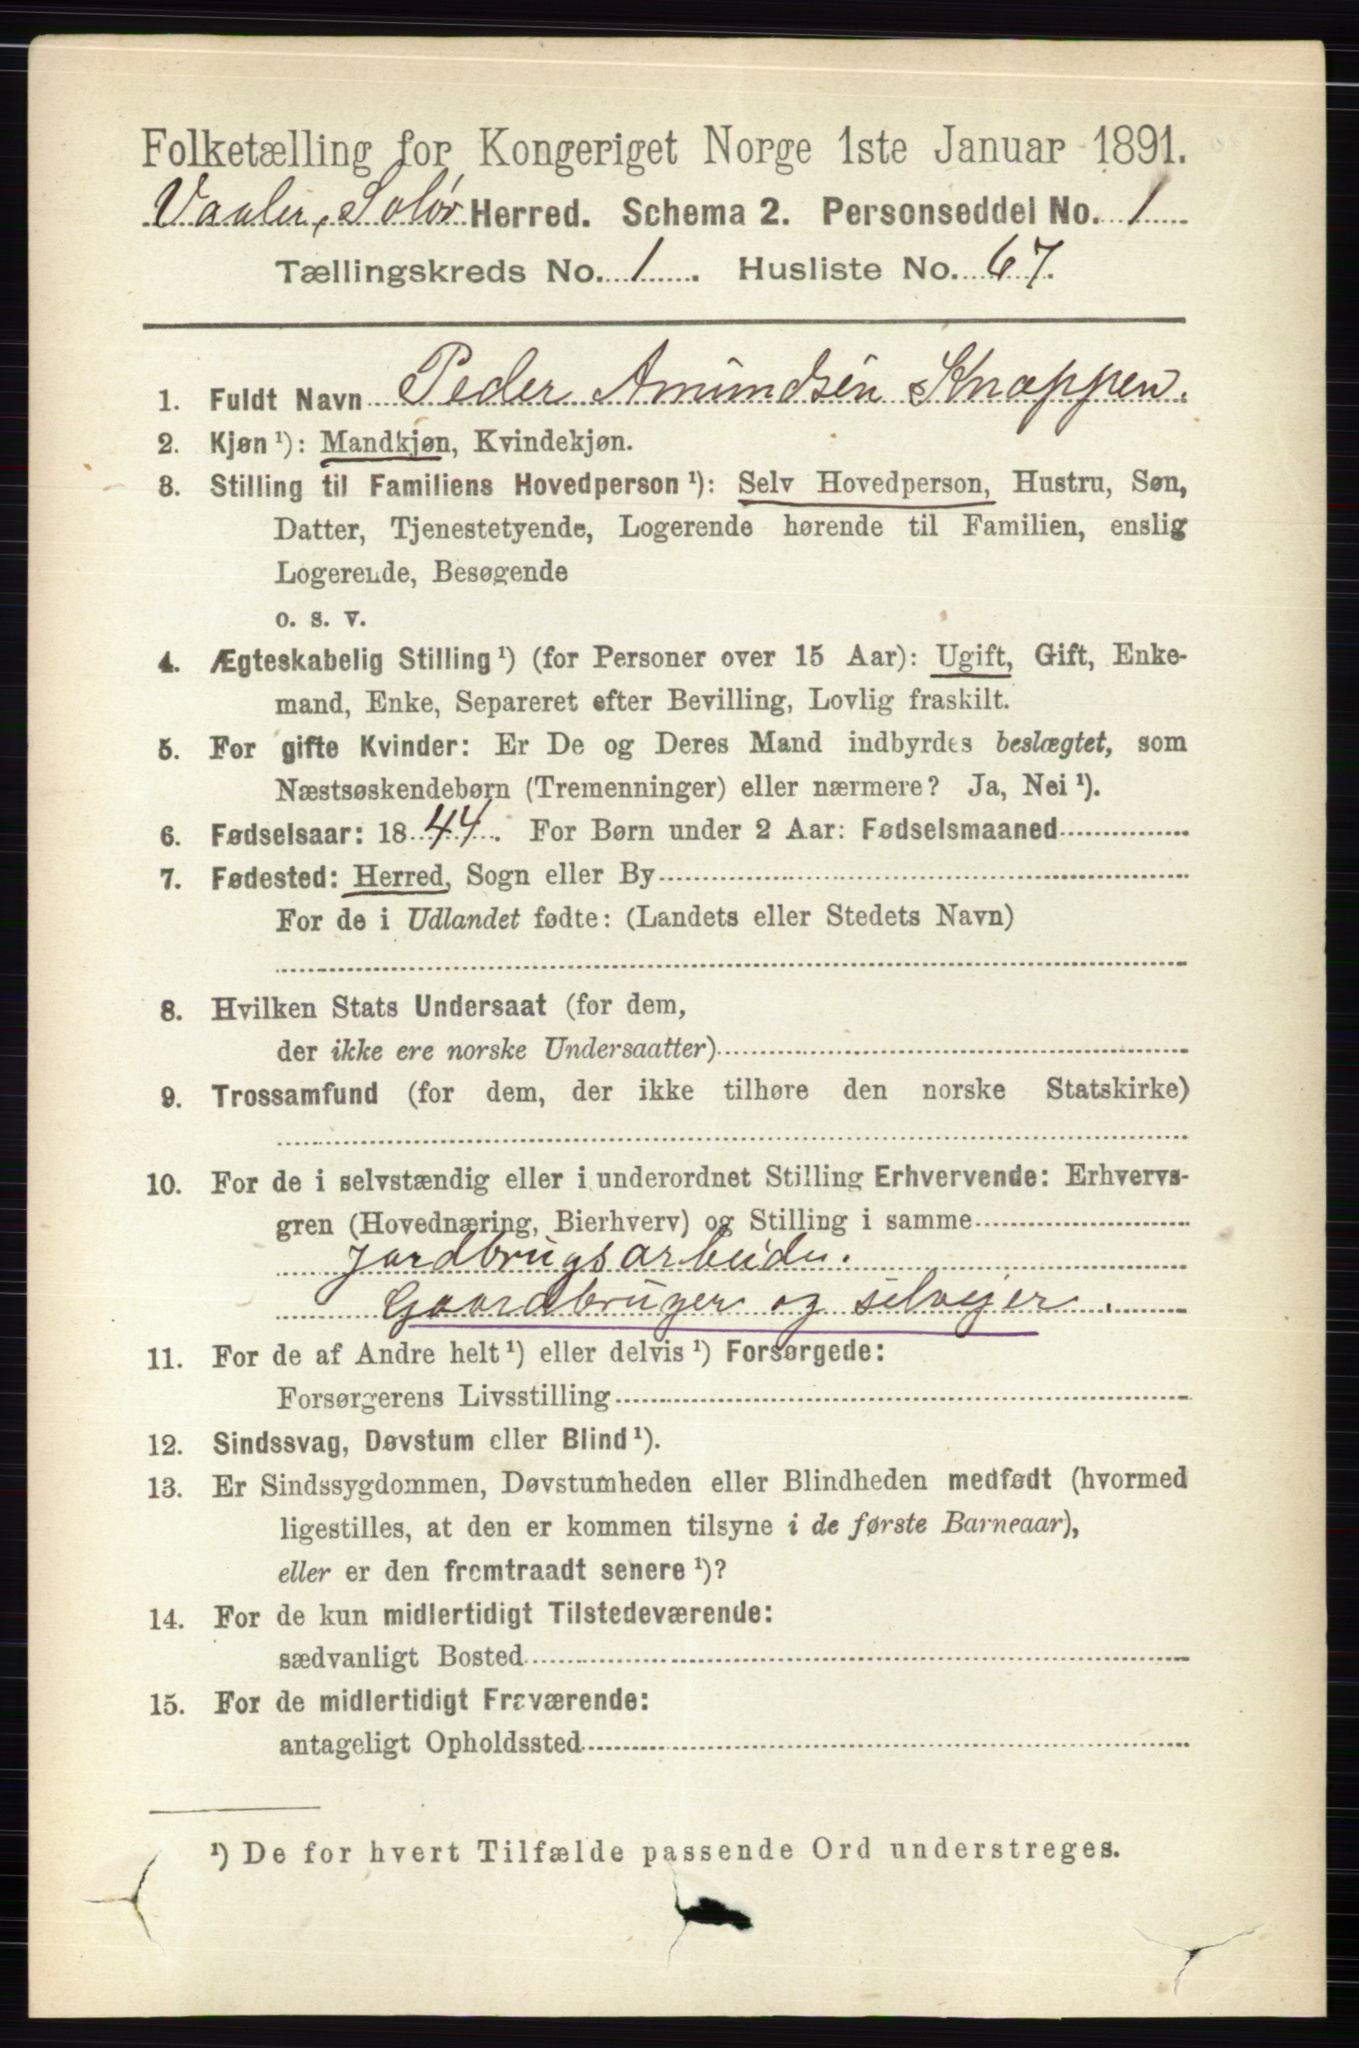 Folketælling for Kongeriget Norge 1ste Januar 1891.
Vaaler, Solør Herred. Schema 2. Personseddel No. 1
Tællingskreds No. 1. Husliste No. 67.
1. Fuldt Navn Peder Amundsen Knappen.
2. Kjøn ¹): Mandkjøn, Kvindekjøn.
3. Stilling til Familiens Hovedperson ¹): Selv Hovedperson, Hustru, Søn,
Datter, Tjenestetyende, Logerende hørende til Familien, enslig
Logerende, Besøgende
o. s. v.
4. Ægteskabelig Stilling ¹) (for Personer over 15 Aar): Ugift, Gift, Enke-
mand, Enke, Separeret efter Bevilling, Lovlig fraskilt.
5. For gifte Kvinder: Er De og Deres Mand indbyrdes beslægtet, som
Næstsøskendebørn (Tremenninger) eller nærmere? Ja, Nei ¹).
6. Fødselsaar: 1844. For Børn under 2 Aar: Fødselsmaaned
7. Fødested: Herred, Sogn eller By
For de i Udlandet fødte: (Landets eller Stedets Navn)
8. Hvilken Stats Undersaat (for dem,
der ikke ere norske Undersaatter)
9. Trossamfund (for dem, der ikke tilhøre den norske Statskirke)
10. For de i selvstændig eller i underordnet Stilling Erhvervende: Erhvervs-
gren (Hovednæring, Bierhverv) og Stilling i samme
Jordbrugsarbeide.
Gaardbruger og selvejer.
11. For de af Andre helt ¹) eller delvis ¹) Forsørgede:
Forsørgerens Livsstilling
12. Sindssvag, Døvstum eller Blind ¹).
13. Er Sindssygdommen, Døvstumheden eller Blindheden medfødt (hvormed
ligestilles, at den er kommen tilsyne i de første Barneaar),
eller er den fremtraadt senere ¹)?
14. For de kun midlertidigt Tilstedeværende:
sædvanligt Bosted
15. For de midlertidigt Fraværende:
antageligt Opholdssted
¹) De for hvert Tilfælde passende Ord understreges.